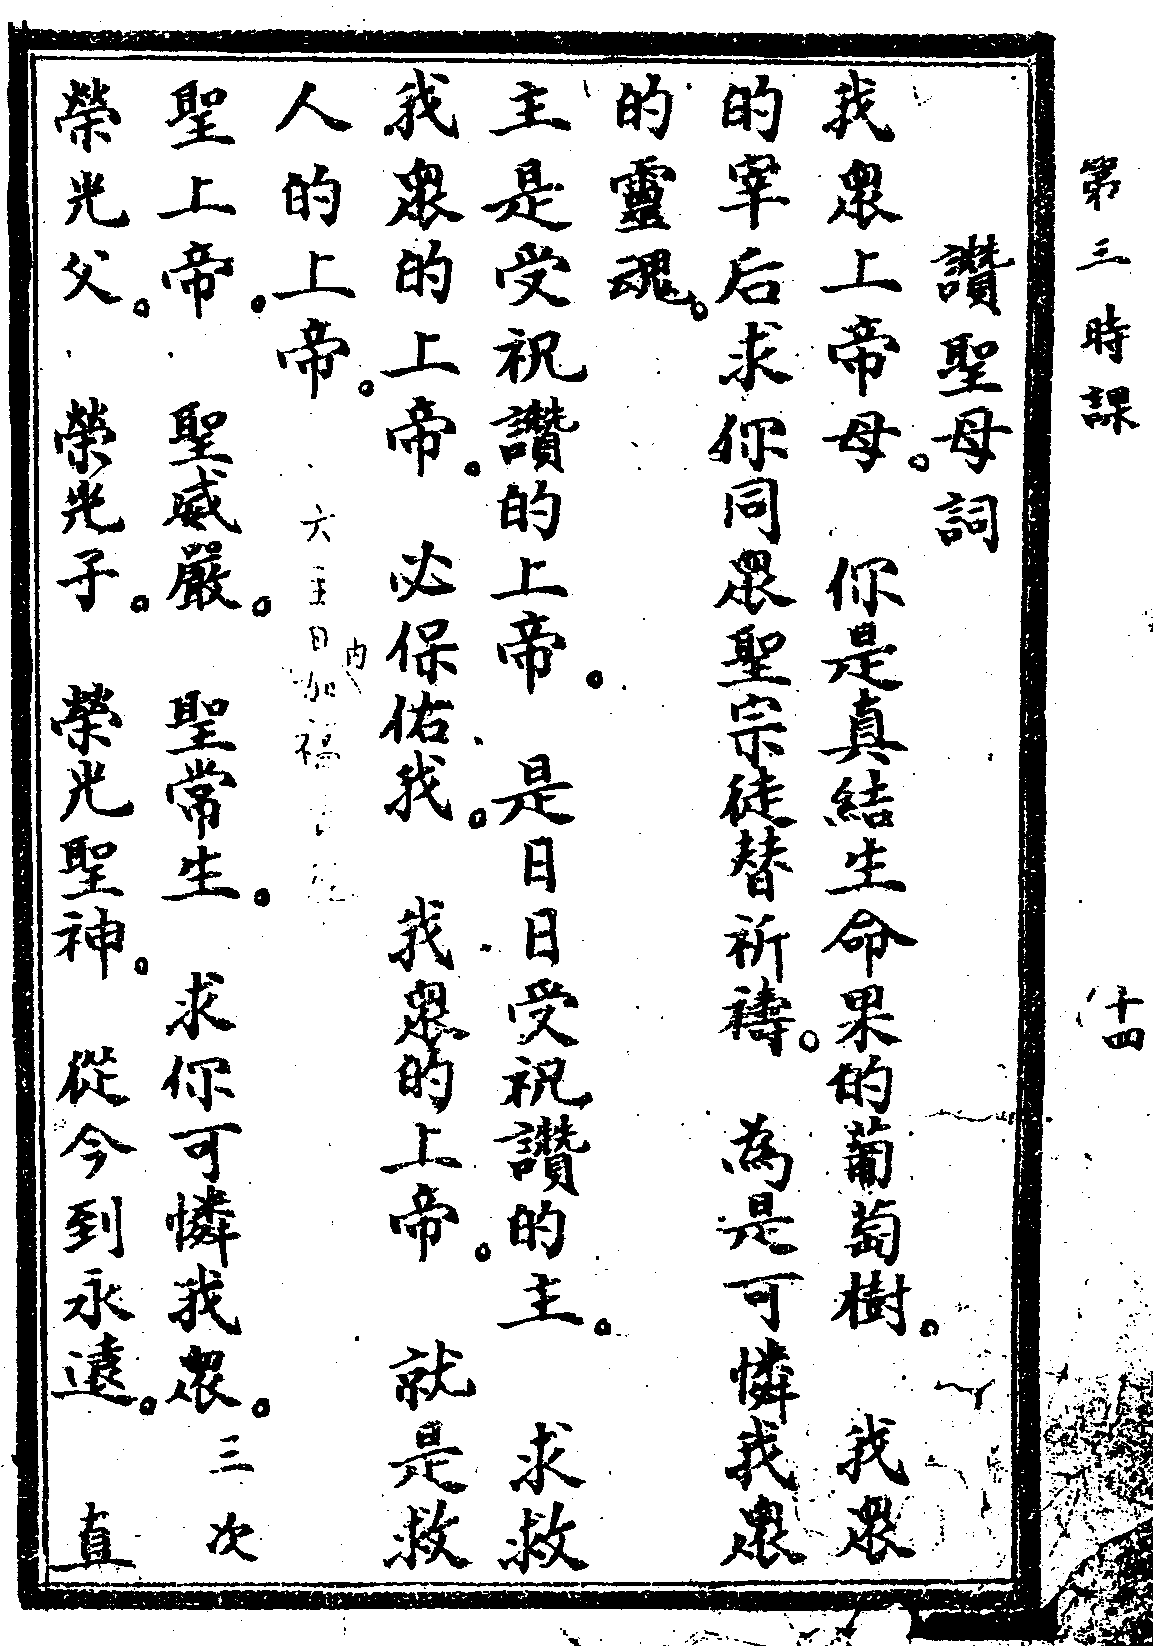 第三時課
十四
讚聖母詞
我眾上帝母。你是真結生命果的葡萄樹。我眾
的宰后求你同眾聖宗徒替祈禱。為是可憐我眾
的靈魂。
主是受祝讚的上帝。是日日受祝讚的主。求救
我眾的上帝。必保佑我。我眾的上帝。就是救
人的上帝。
六主日內加福
聖上帝。聖威嚴。聖常生。求你可憐我眾。三次
榮光父。榮光子。榮光聖神。從今到永遠。直